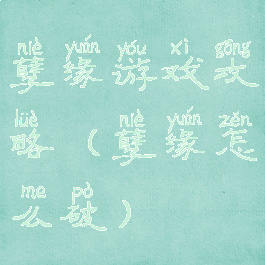 niè yuán yóu xì gōng
孽缘游戏攻
lüè niè yuán zěn
略（孽缘怎
me pò
么破）